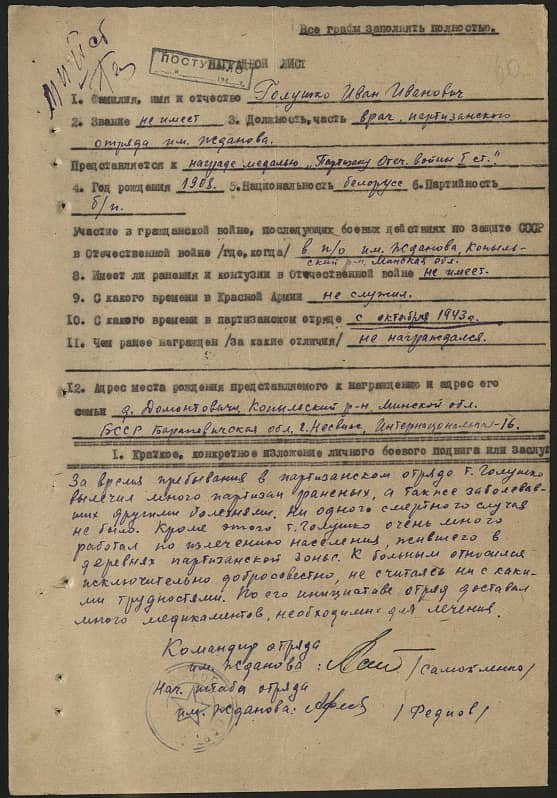 Все графы заполнять полностью.
ПОСТУПИЛО
НАГРАДНОЙ ЛИСТ
1. Фамилия, имя и отчество Голушко Иван Иванович
2. Звание не имеет 3. Должность, часть врач, партизанского
отряда им. Жданова.
Представляется к награде медалью „Партизану Отеч. войны I ст."
4. Год рождения 1908. 5. Национальность белорусс 6. Партийность
б/п.
Участие в гражданской войне, последующих боевых действиях по защите СССР
в Отечественной войне /где, когда/ в п/о им. Жданова, Копыль-
ский р-н, Минская обл.
8. Имеет ли ранения и контузии в Отечественной войне не имеет.
9. С какого времени в Красной Армии не служил.
10. С какого времени в партизанском отряде с октября 1943 г.
11. Чем ранее награжден /за какие отличия/ не награждался.
12. Адрес места рождения представляемого к награждению и адрес его
семьи д. Домонтовичи, Копыльский р-н, Минской обл.
БССР Барановичская обл. г. Несвиж, Интернациональная-16.
1. Краткое, конкретное изложение личного боевого подвига или заслуг
За время пребывания в партизанском отряде т. Голушко
вылечил много партизан раненых, а также заболевав-
ших другими болезнями. Ни одного смертного случая
не было. Кроме этого т. Голушко очень много
работал по излечению населения, жившего в
деревнях партизанской зоны. К больным относился
исключительно добросовестно, не считаясь ни с каки-
ми трудностями. По его инициативе отряд доставал
много медикаментов, необходимых для лечения.
Командир отряда
им. Жданова: /Самокленко/
Нач. штаба отряда
им. Жданова: /Федков/